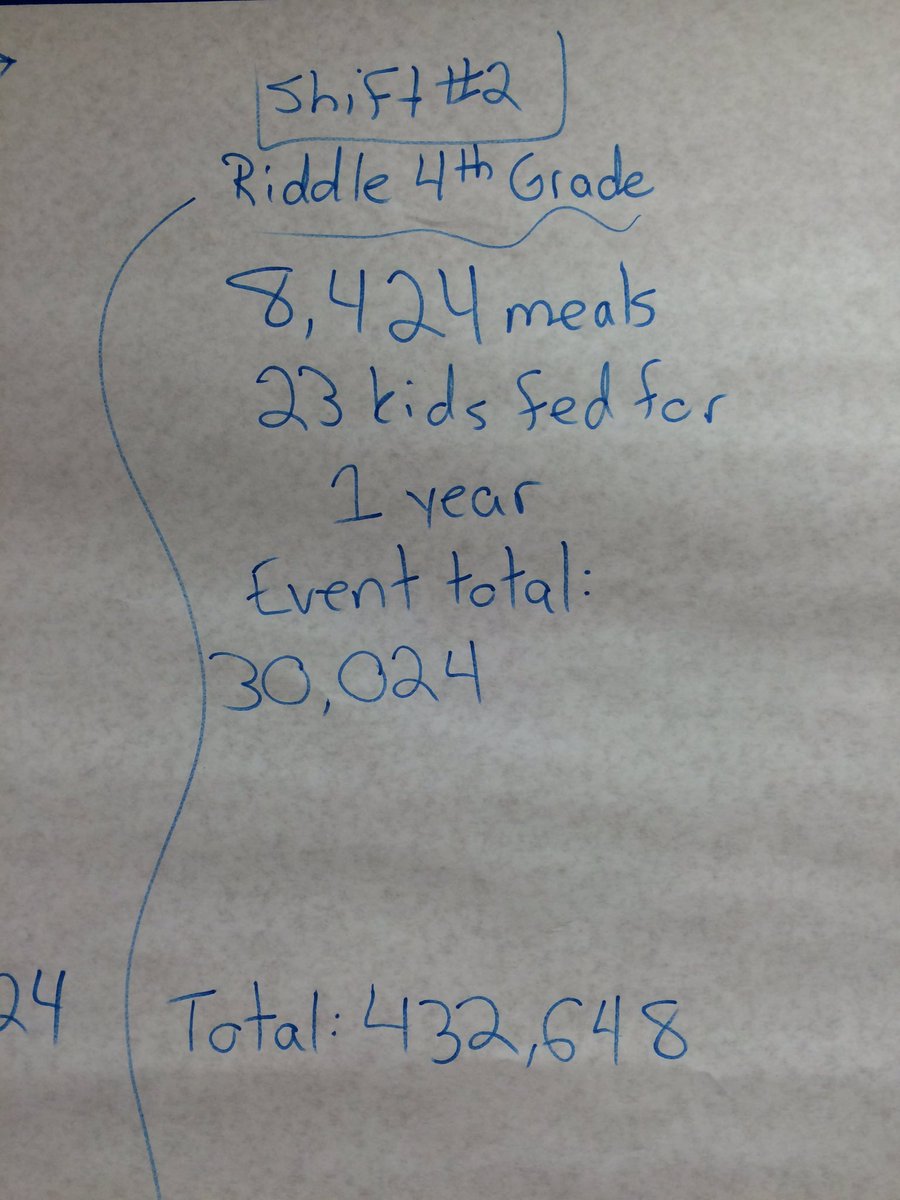 Shift #2
Riddle 4th Grade
8,424 meals
23 kids fed for
1 year
Event total:
30,024
24
Total: 432,648